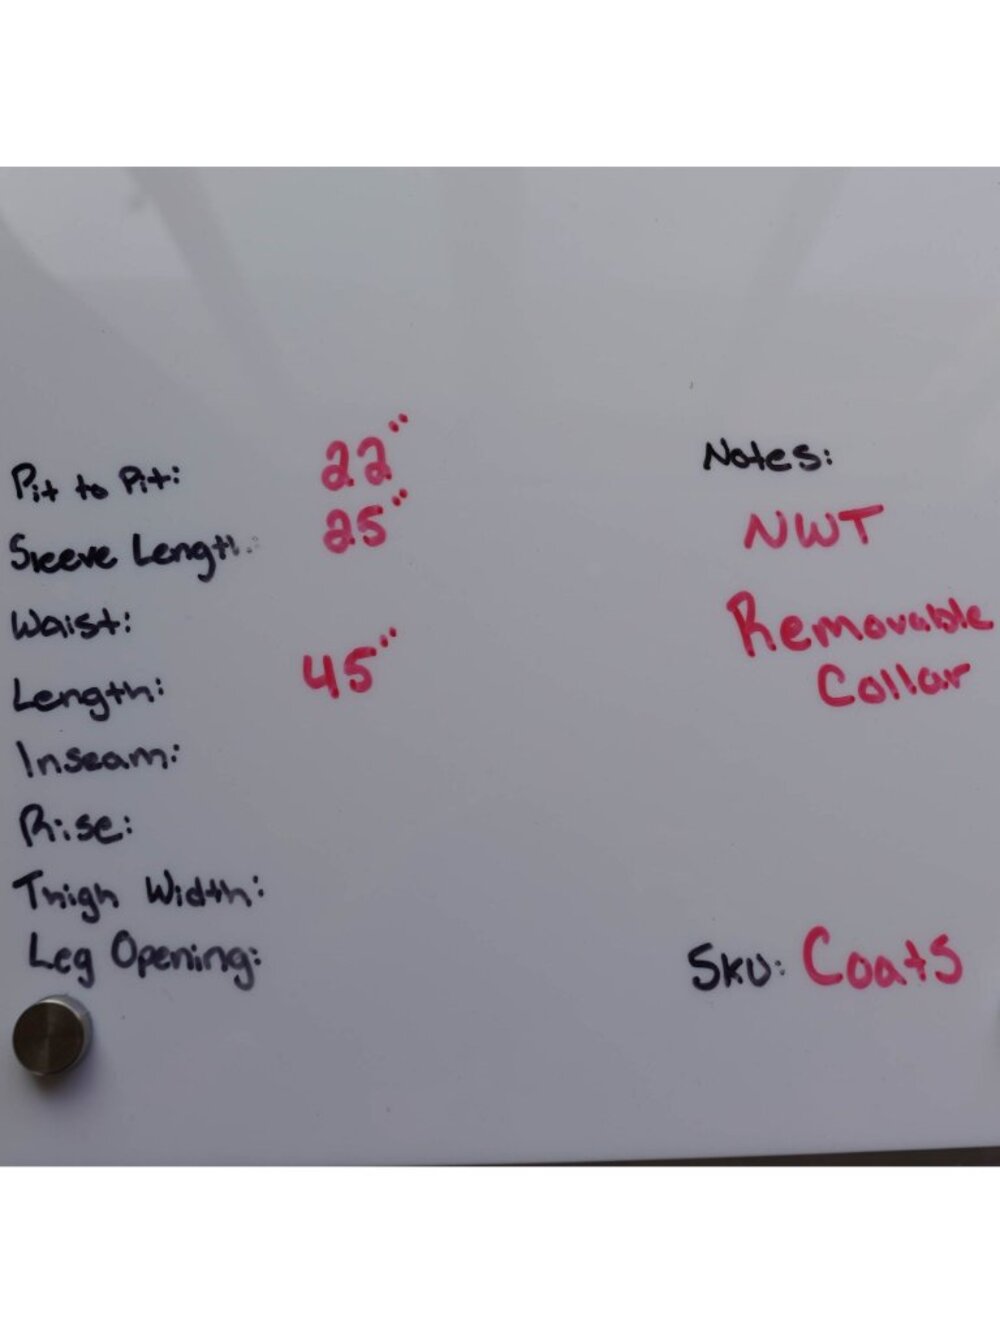 Pit to Pit: 22"
Sleeve Length: 25"
Waist:
Length: 45"
Inseam:
Rise:
Thigh Width:
Leg Opening:
Notes:
NWT
Removable
Collar
SKU: Coats